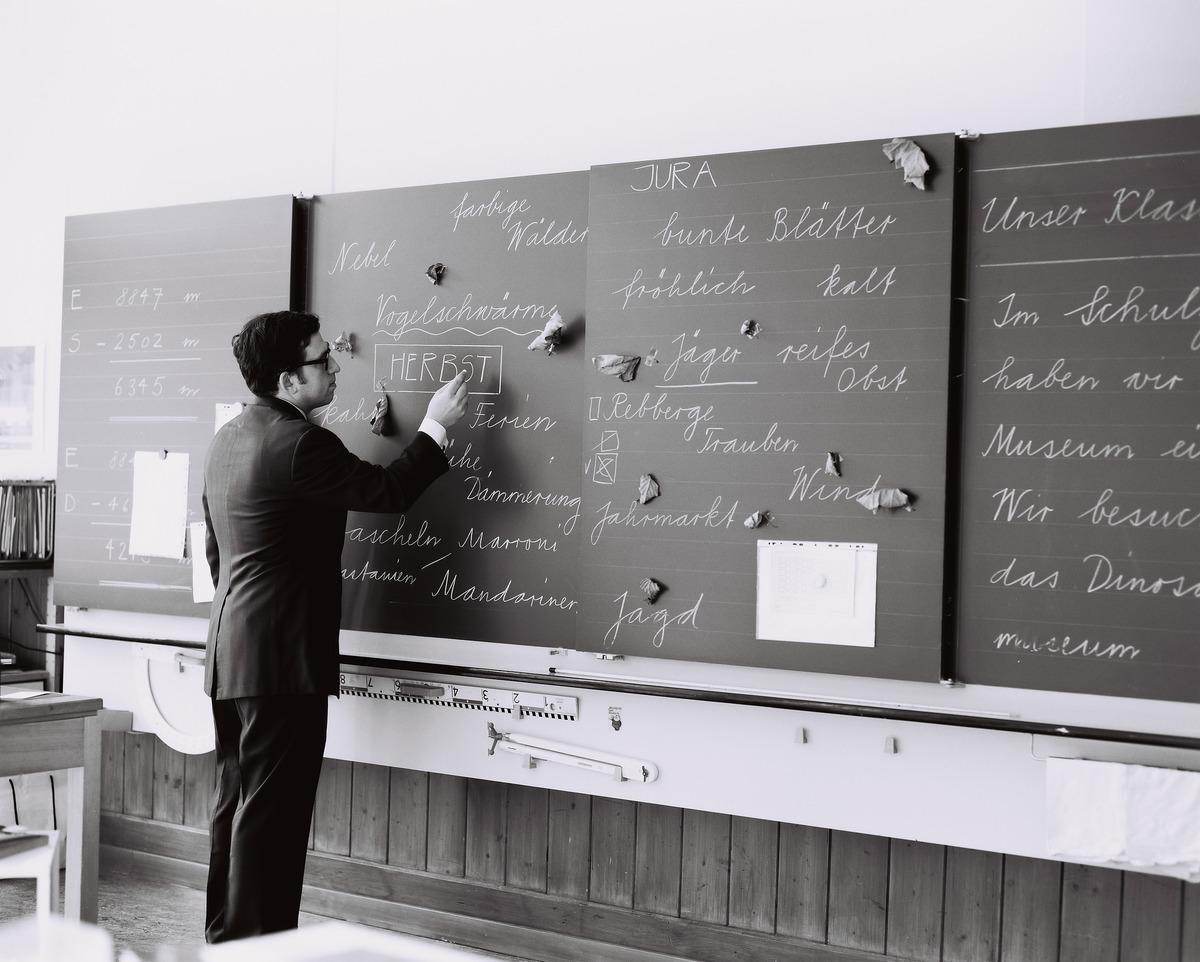 E 8847 m
S - 2502 m
6345 m
E
D
farbige
Wälder
Nebel
Vogelschwärme
HERBST
kahl
Ferien
Dämmerung
Marroni
Mandarinen
JURA
bunte Blätter
fröhlich kalt
Jäger reifes
Obst
Rebberge
Trauben
Wind
Jahrmarkt
Jagd
Unser Klas
Im Schul
haben wir
Museum ei
Wir besuc
das Dinos
museum
8 7 6 5 4 3 2